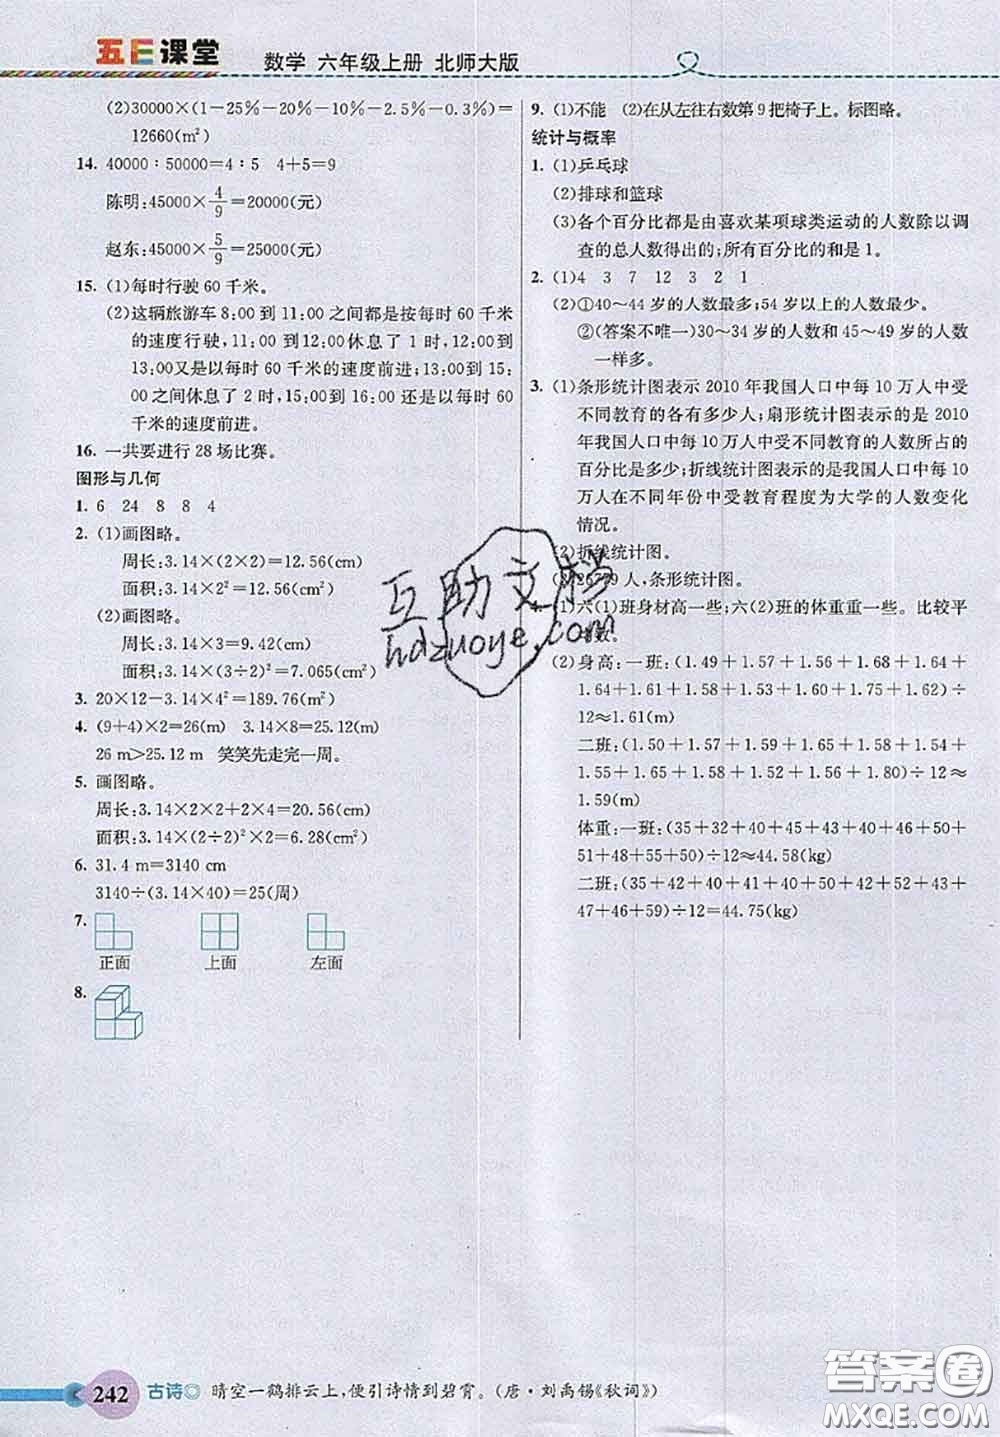 五E课堂
数学 六年级上册 北师大版
(2)30000×(1－25%－20%－10%－2.5%－0.3%)＝
12660(m²)
14. 40000∶50000＝4∶5 4＋5＝9
陈明:45000×4/9＝20000(元)
赵东:45000×5/9＝25000(元)
15. (1)每时行驶 60 千米。
(2)这辆旅游车 8:00 到 11:00 之间都是按每时 60 千米
的速度行驶,11:00 到12:00休息了 1 时,12:00到
13:00又是以每时 60 千米的速度前进;13:00到 15:
00 之间休息了 2 时,15:00到 16:00 还是以每时 60
千米的速度前进。
16. 一共要进行 28 场比赛。
图形与几何
1. 6 24 8 8 4
2. (1)画图略。
周长:3.14×(2×2)＝12.56(cm)
面积:3.14×2²＝12.56(cm²)
(2)画图略。
周长:3.14×3＝9.42(cm)
面积:3.14×(3÷2)²＝7.065(cm²)
3. 20×12－3.14×4²＝189.76(m²)
4. (9＋4)×2＝26(m) 3.14×8＝25.12(m)
26 m>25.12 m 笑笑先走完一周。
5. 画图略。
周长:3.14×2×2＋2×4＝20.56(cm)
面积:3.14×(2÷2)²×2＝6.28(cm²)
6. 31.4 m＝3140 cm
3140÷(3.14×40)＝25(周)
7.
正面 上面 左面
8.
9. (1)不能 (2)在从左往右数第 9 把椅子上。标图略。
统计与概率
1. (1)乒乓球
(2)排球和篮球
(3)各个百分比都是由喜欢某项球类运动的人数除以调
查的总人数得出的;所有百分比的和是 1。
2. (1)4 3 7 12 3 2 1
(2)①40～44 岁的人数最多;54 岁以上的人数最少。
②(答案不唯一)30～34 岁的人数和 45～49 岁的人数
一样多。
3. (1)条形统计图表示 2010 年我国人口中每 10 万人中受
不同教育的各有多少人;扇形统计图表示的是 2010
年我国人口中每 10 万人中受不同教育的人数所占的
百分比是多少;折线统计图表示的是我国人口中每 10
万人在不同年份中受教育程度为大学的人数变化
情况。
(2)折线统计图。
人,条形统计图。
(1)六(1)班身材高一些;六(2)班的体重重一些。比较平
数。
(2)身高:一班:(1.49＋1.57＋1.56＋1.68＋1.64＋
1.64＋1.61＋1.58＋1.53＋1.70＋1.64＋1.62)÷
12≈1.61(m)
二班:(1.50＋1.57＋1.55＋1.64＋1.58＋1.54＋
1.55＋1.65＋1.62＋1.55＋1.56＋1.80)÷12≈
1.59(m)
体重:一班:(35＋32＋40＋45＋43＋40＋46＋50＋
51＋48＋55＋50)÷12≈44.58(kg)
二班:(35＋42＋40＋41＋40＋42＋52＋43＋
47＋46＋59)÷12＝44.75(kg)
互助文档
hdzuoye.com
242
古诗◎ 晴空一鹤排云上,便引诗情到碧霄。(唐·刘禹锡《秋词》)
答案圈
MXQE.COM